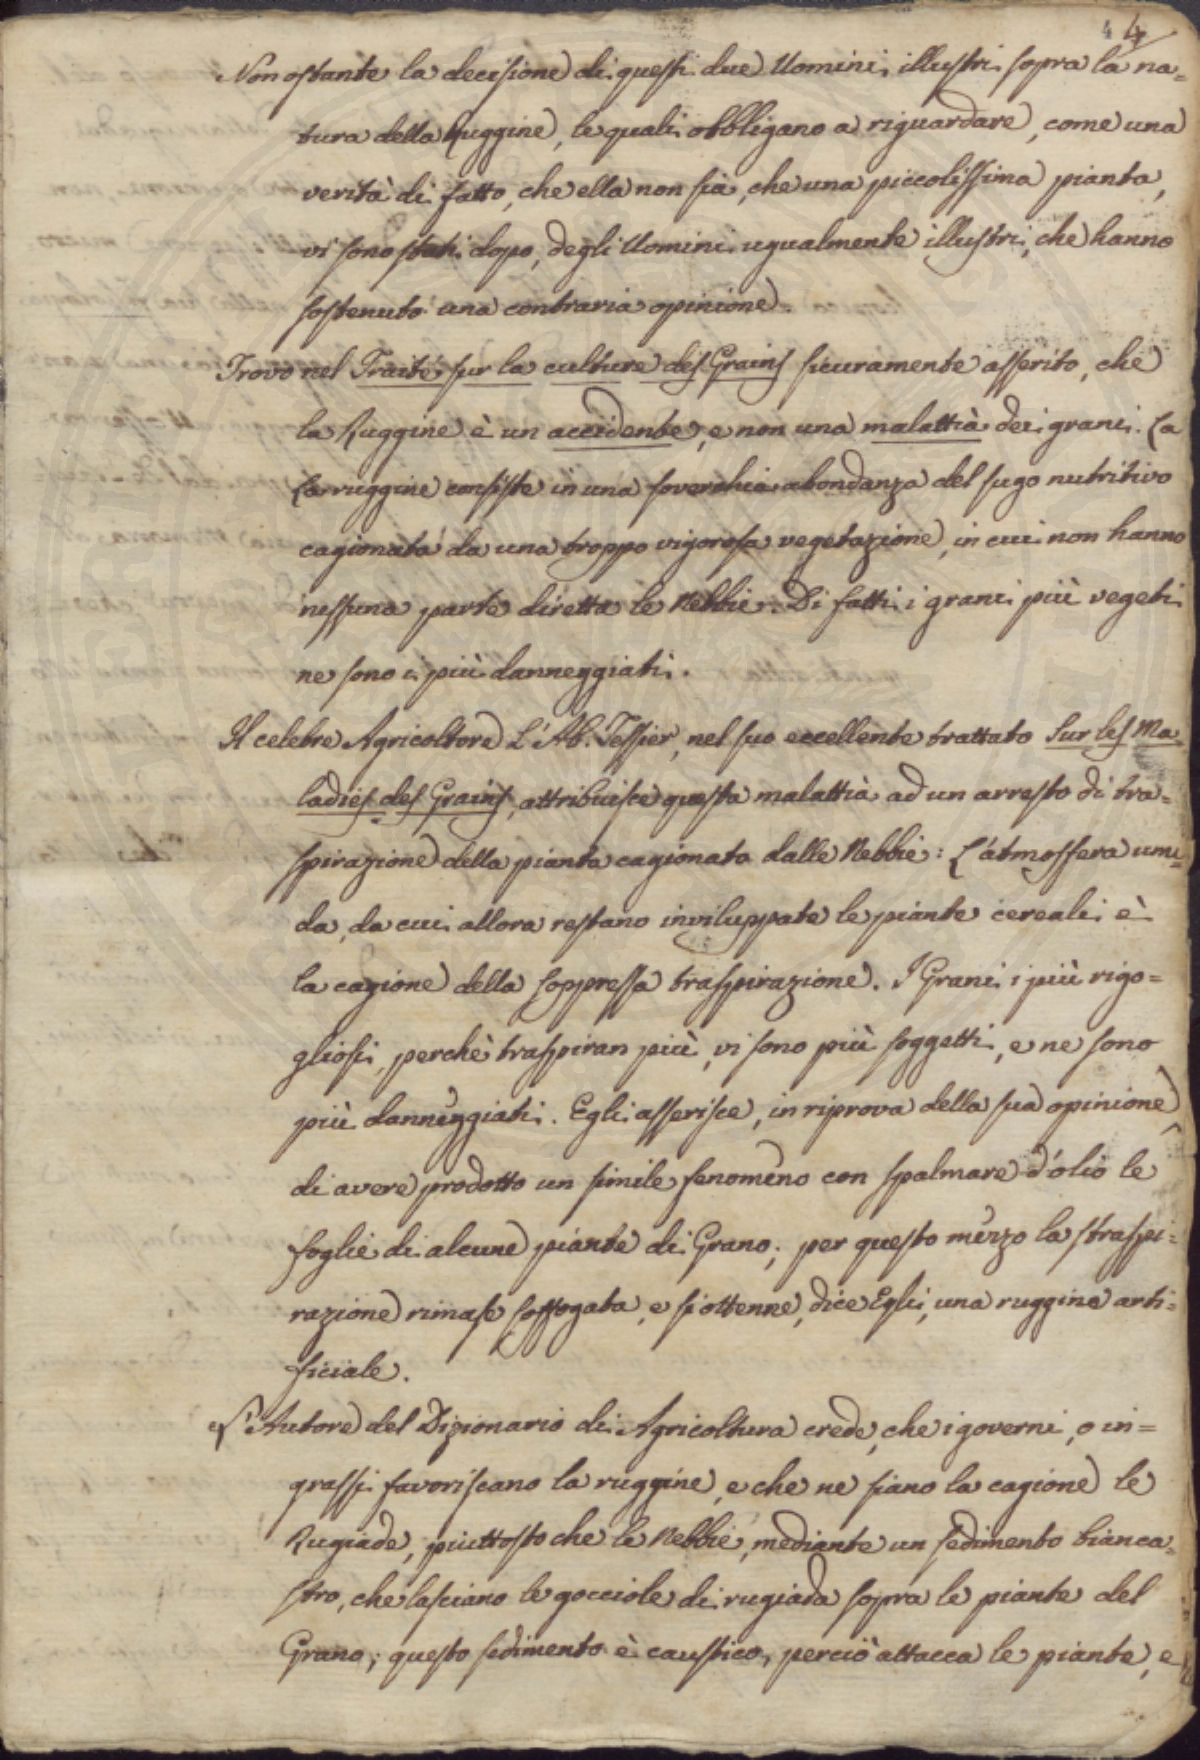 4 4
Non ostante la decisione di questi due Uomini illustri sopra la na=
tura della Ruggine, le quali obbligano a riguardare, come una
verità di fatto, che ella non sia, che una piccolissima pianta,
vi sono stati dopo, degli Uomini ugualmente illustri, che hanno
sostenuto una contraria opinione.
Trovo nel Traité sur la culture des Grains sicuramente asserito, che
la Ruggine è un accidente, e non una malattia dei grani. La
Carruggine consiste in una soverchia abondanza del sugo nutritivo
cagionata da una troppo vigorosa vegetazione, in cui non hanno
nessuna parte diretta le Nebbie. Di fatti i grani più vegeti
ne sono i più danneggiati.
Il celebre Agricoltore L'Ab. Tessier, nel suo eccellente trattato Sur les Ma=
ladies des Grains, attribuisce questa malattia ad un arresto di tra=
spirazione della pianta cagionata dalle Nebbie: L'atmosfera umi=
da, da cui allora restano inviluppate le piante cereali è
la cagione della soppressa traspirazione. I Grani i più rigo=
gliosi, perchè traspiran più, vi sono più soggetti, e ne sono
più danneggiati. Egli asserisce, in riprova della sua opinione,
di avere prodotto un simile fenomeno con spalmare d'olio le
foglie di alcune piante di Grano; per questo mezzo la straspi=
razione rimase soffogata, e si ottenne, dice Egli, una ruggine arti=
ficiale.
L'Autore del Dizionario di Agricoltura crede, che i governi, o in=
grassi favoriscano la ruggine, e che ne siano la cagione le
Rugiade, piuttosto che le Nebbie, mediante un sedimento bianca=
stro, che lasciano le gocciole di rugiada sopra le piante del
Grano; questo sedimento è caustico, perciò attacca le piante, e